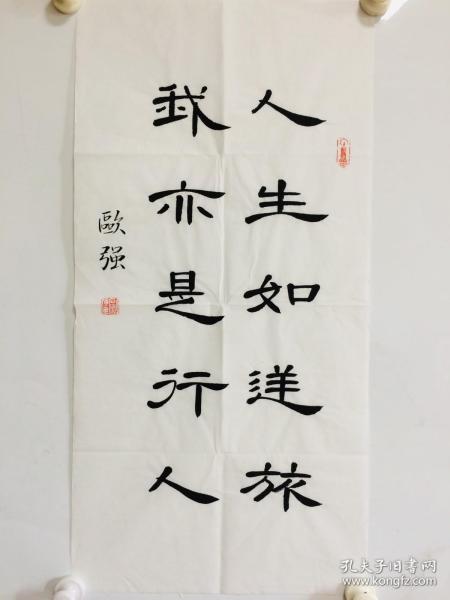 人生如逆旅
我亦是行人
歐强
孔夫子旧书网
www.kongfz.com